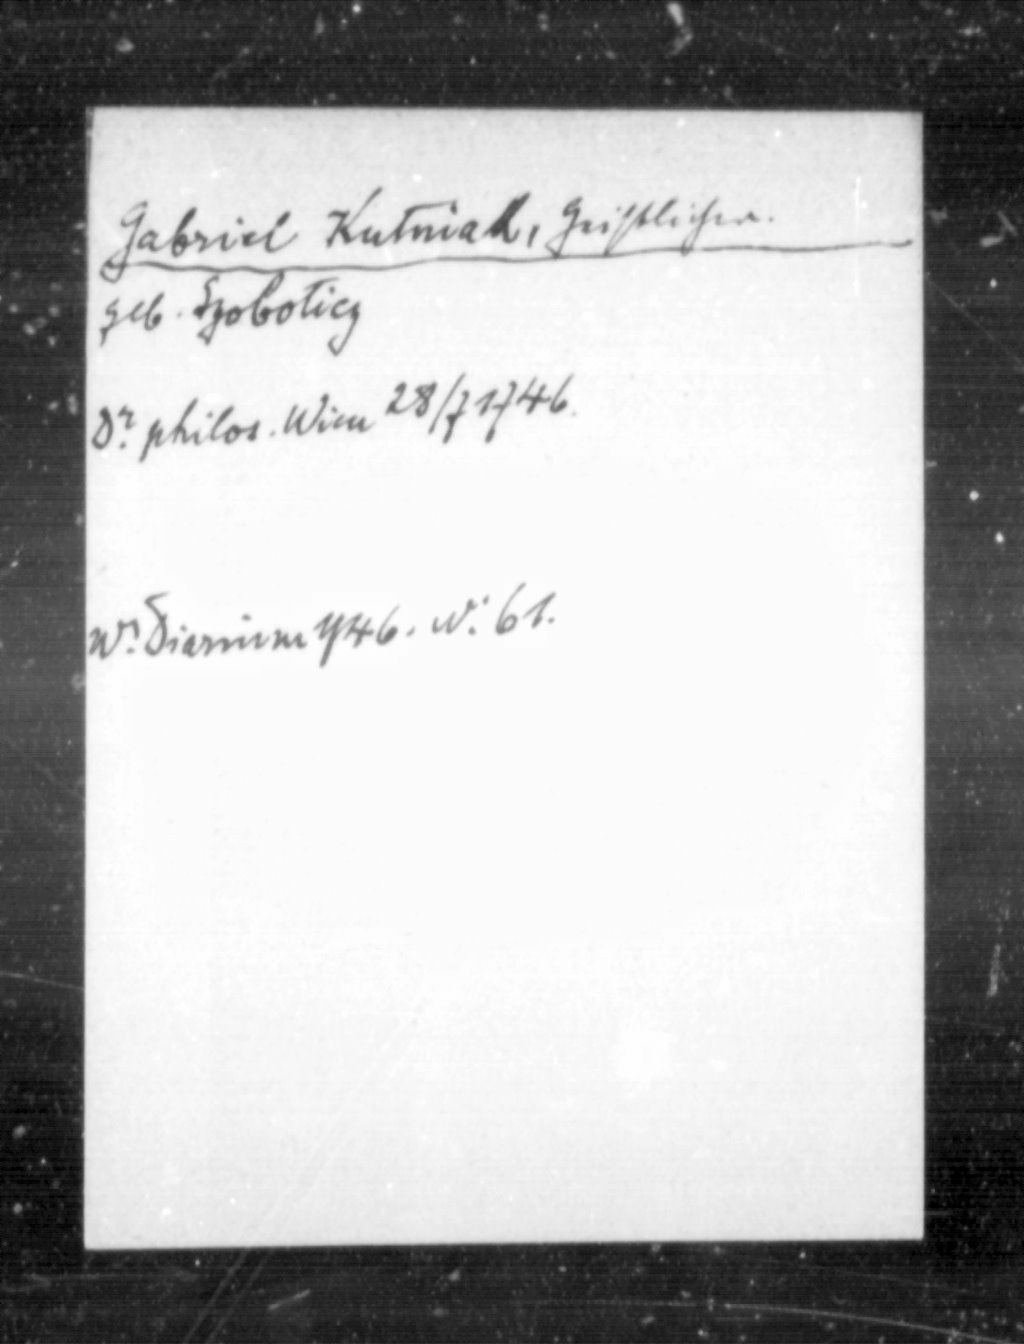 Gabriel Kutniak, Geistlicher.
geb. Szoboticz
Dr. philos. Wien 28/7 1746.
Wr. Diarium 1746. Nr. 61.